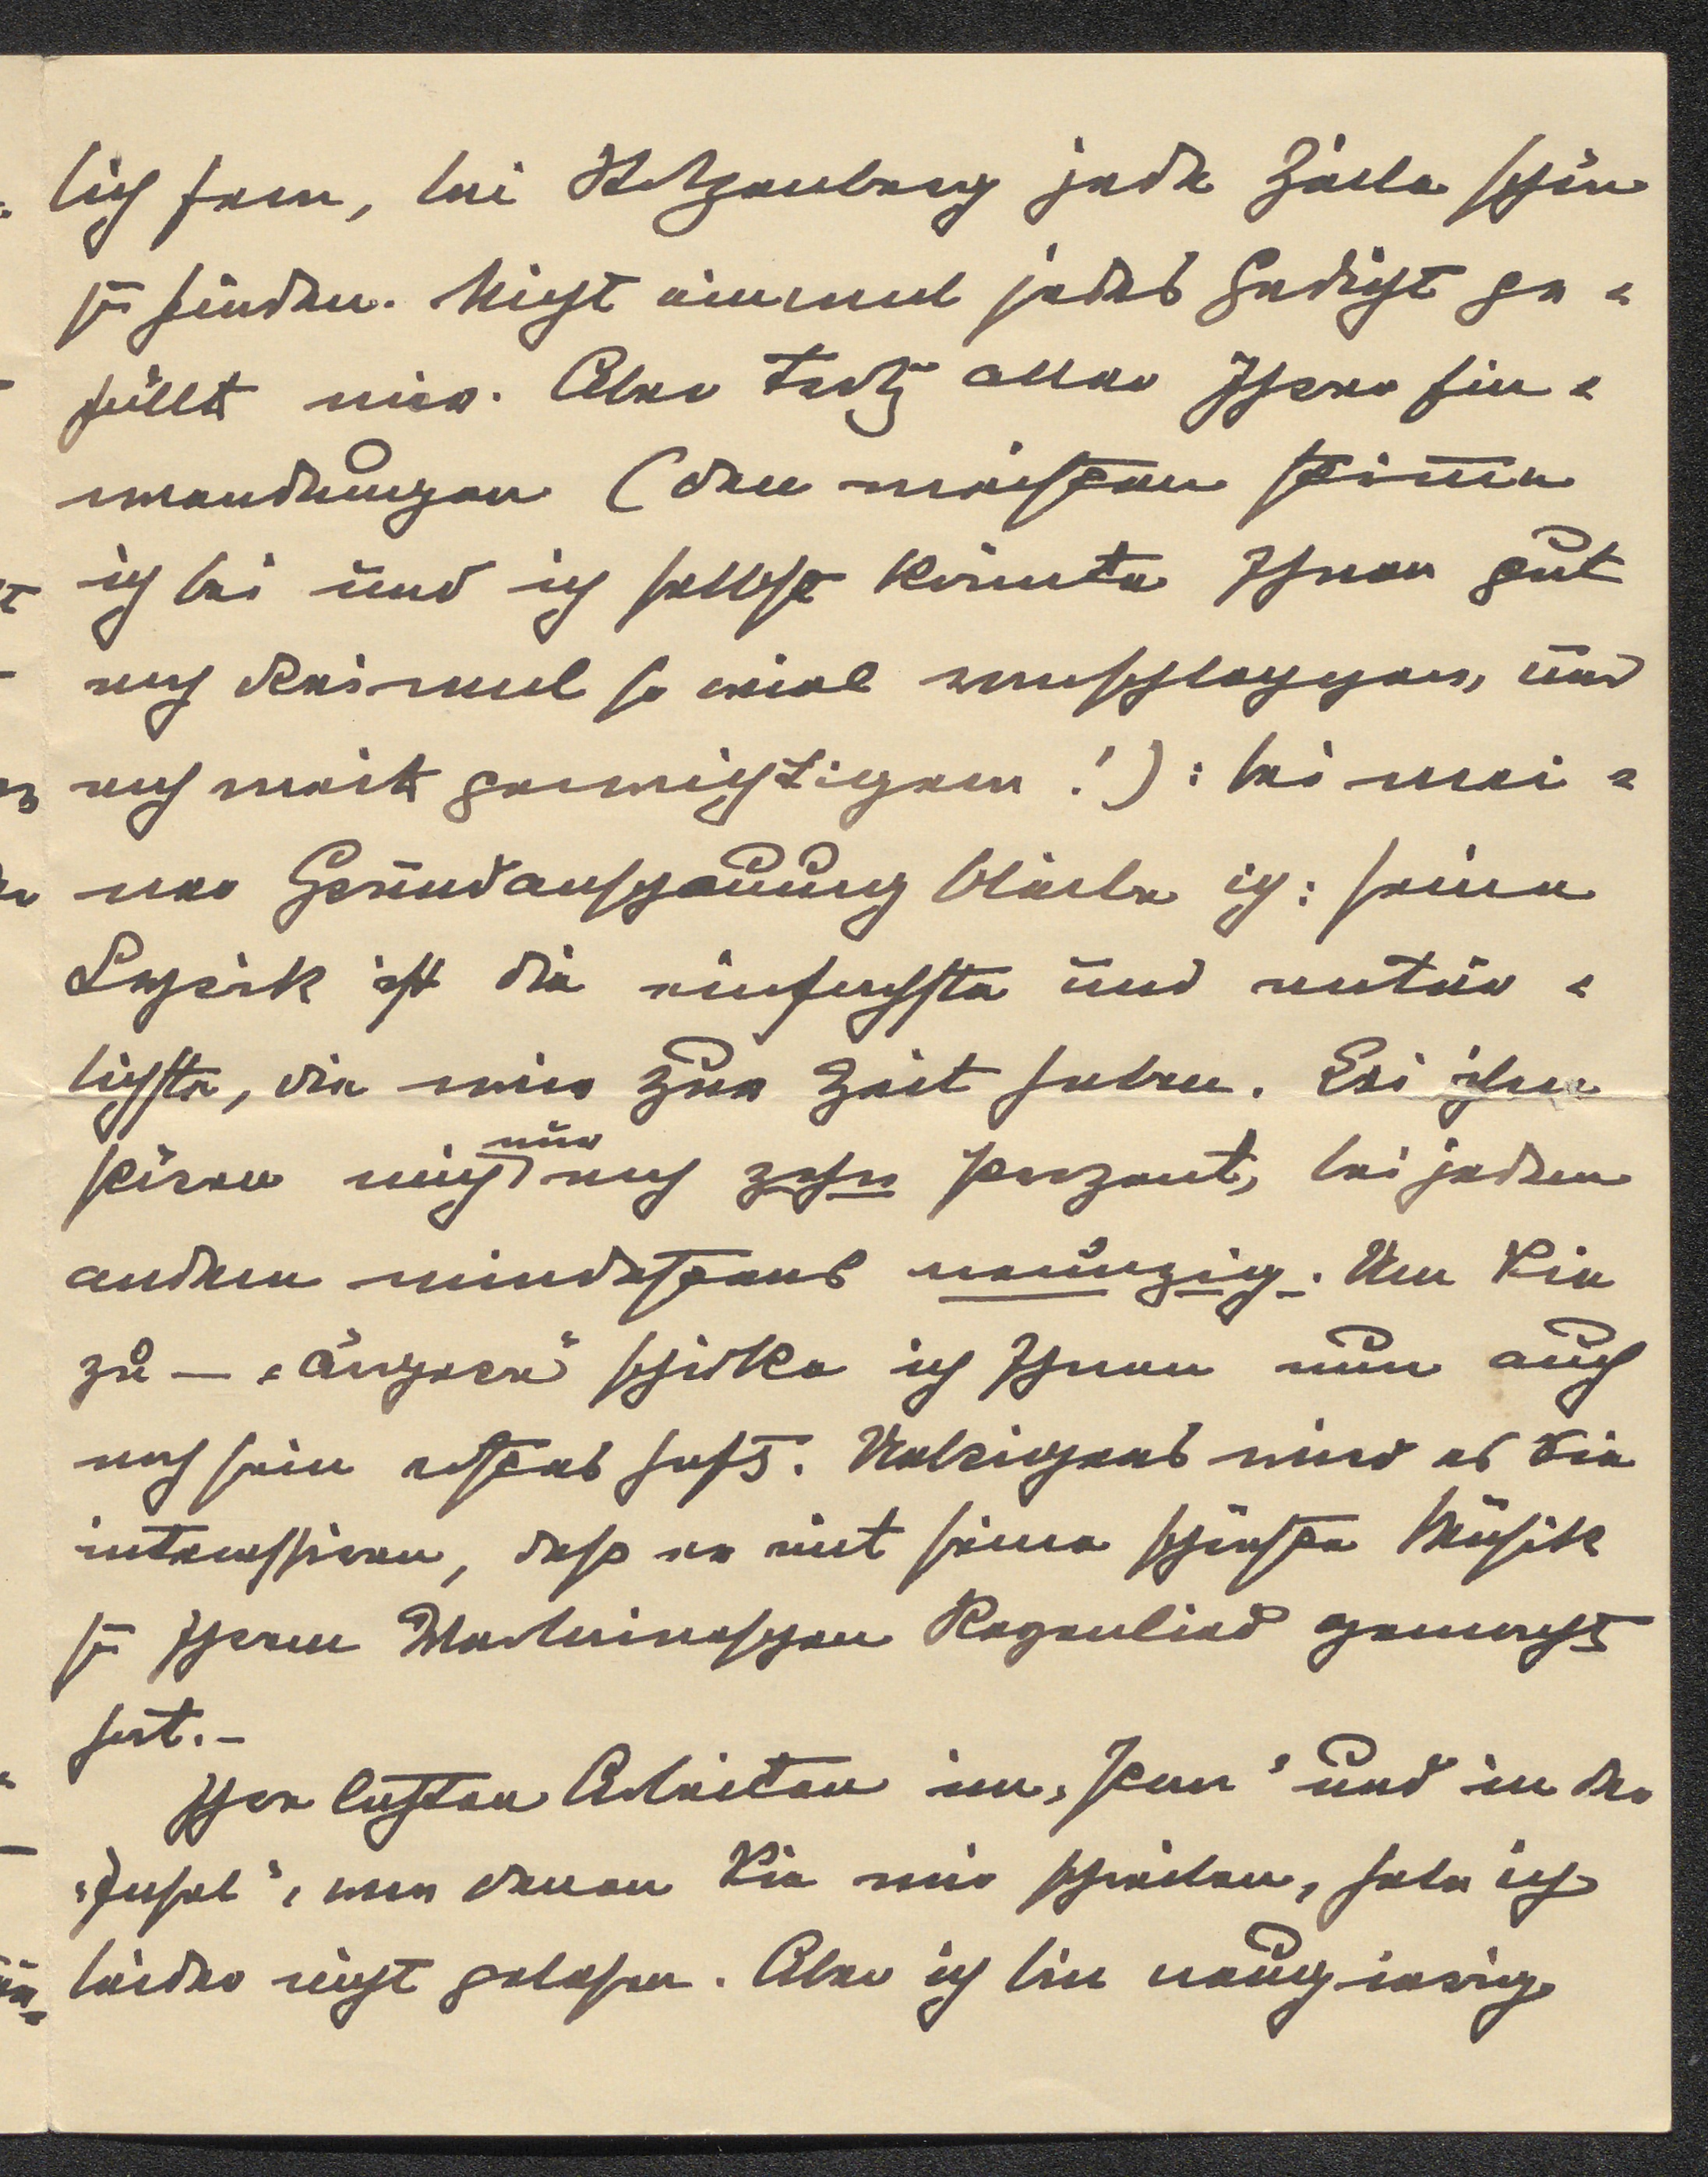 lich fern, bei Stolzenberg jede Zeile schön
zu finden. Nicht einmal jedes Gedicht ge-
fällt mir. Aber trotz aller Ihrer Ein-
wendungen (den meisten stimme
ich bei und ich selbst könnte Ihnen gut
noch dreimal so viel vorschlagen, und
noch weit gewichtigere!): bei mei-
ner Grundanschauung bleibe ich: seine
Lyrik ist die einfachste und natür-
lichste, die wir zur Zeit haben. Bei ihm
stören mich nur noch zehn Perzent, bei jedem
andern mindestens neunzig. Um Sie
zu – „ärgern" schicke ich Ihnen nun auch
noch sein erstes Heft. Uebrigens wird es Sie
interessiren, dass er mit seine schönste Musik
zu Ihrem Regenlied gemacht
hat.–
Ihre letzten Arbeiten im „Pan" und in der
„Insel", von denen Sie mir schreiben, habe ich
leider nicht gelesen. Aber ich bin neugierig